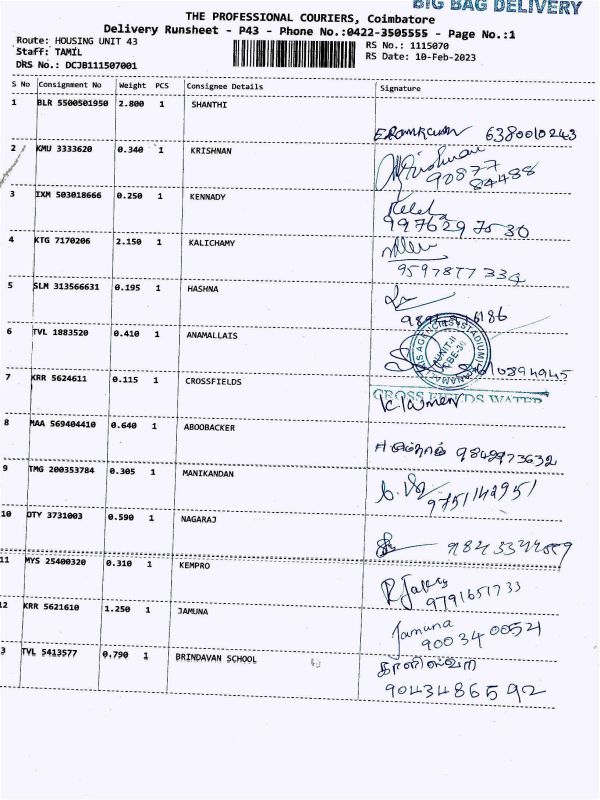 BIG BAG DELIVERY
THE PROFESSIONAL COURIERS, Coimbatore
Delivery Runsheet - P43 - Phone No.:0422-3505555 - Page No.:1
Route: HOUSING UNIT 43
RS No.: 1115070
Staff: TAMIL
RS Date: 10-Feb-2023
DRS No.: DCJB111507001
S No Consignment No Weight PCS Consignee Details Signature
1 BLR 5500501950 2.800 1 SHANTHI
6380010243
2 KMU 3333620 0.340 1 KRISHNAN
Krishnan
90877
84488
3 IXM 503018666 0.250 1 KENNADY
4 KTG 7170206 2.150 1 KALICHAMY
9597877334
5 SLM 313566631 0.195 1 HASHNA
6 TVL 1883520 0.410 1 ANAMALLAIS
7 KRR 5624611 0.115 1 CROSSFIELDS
CROSS FIELDS WATER
8 MAA 569404410 0.640 1 ABOOBACKER
9842973632
9 TMG 200353784 0.305 1 MANIKANDAN
9751142951
10 DTY 3731003 0.590 1 NAGARAJ
11 MYS 25400320 0.310 1 KEMPRO
9791651733
12 KRR 5621610 1.250 1 JAMUNA
Jamuna
9003400521
3 TVL 5413577 0.790 1 BRINDAVAN SCHOOL
9043486592